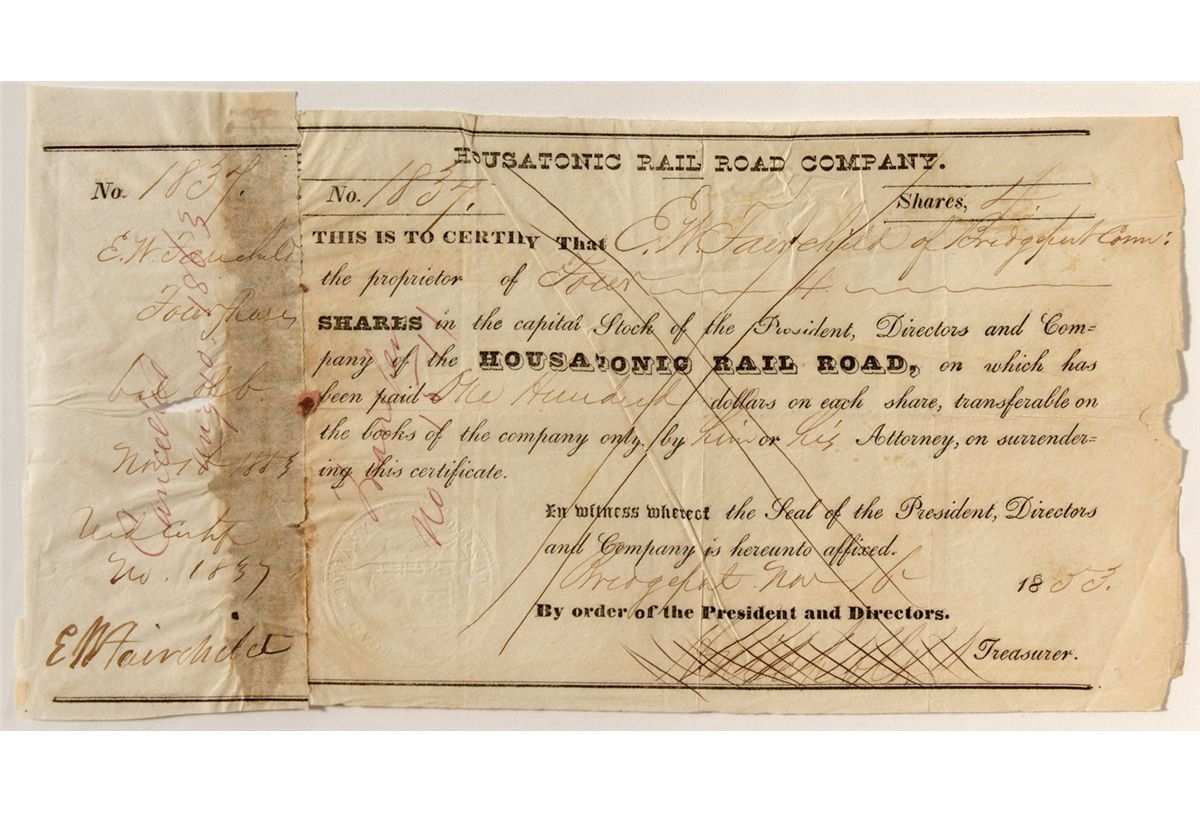 No. 1837.
E. W. Fairchild
Four shares
Nov 18 1853
No. 1837
E W Fairchild
Cancelled
HOUSATONIC RAIL ROAD COMPANY.
No. 1837.
Shares, 4.
THIS IS TO CERTIFY That E. W. Fairchild of Bridgeport Conn:
the proprietor of Four
SHARES in the capital Stock of the President, Directors and Com=
pany of the HOUSATONIC RAIL ROAD, on which has
been paid One Hundred dollars on each share, transferable on
the books of the company only, by him or his Attorney, on surrender=
ing this certificate.
In witness whereof the Seal of the President, Directors
and Company is hereunto affixed.
Bridgeport Nov 1853.
By order of the President and Directors.
Treasurer.